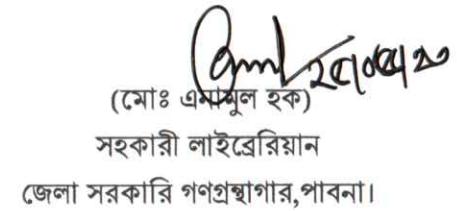 (মোঃ এনামুল হক)
সহকারী লাইব্রেরিয়ান
জেলা সরকারি গণগ্রন্থাগার,পাবনা।